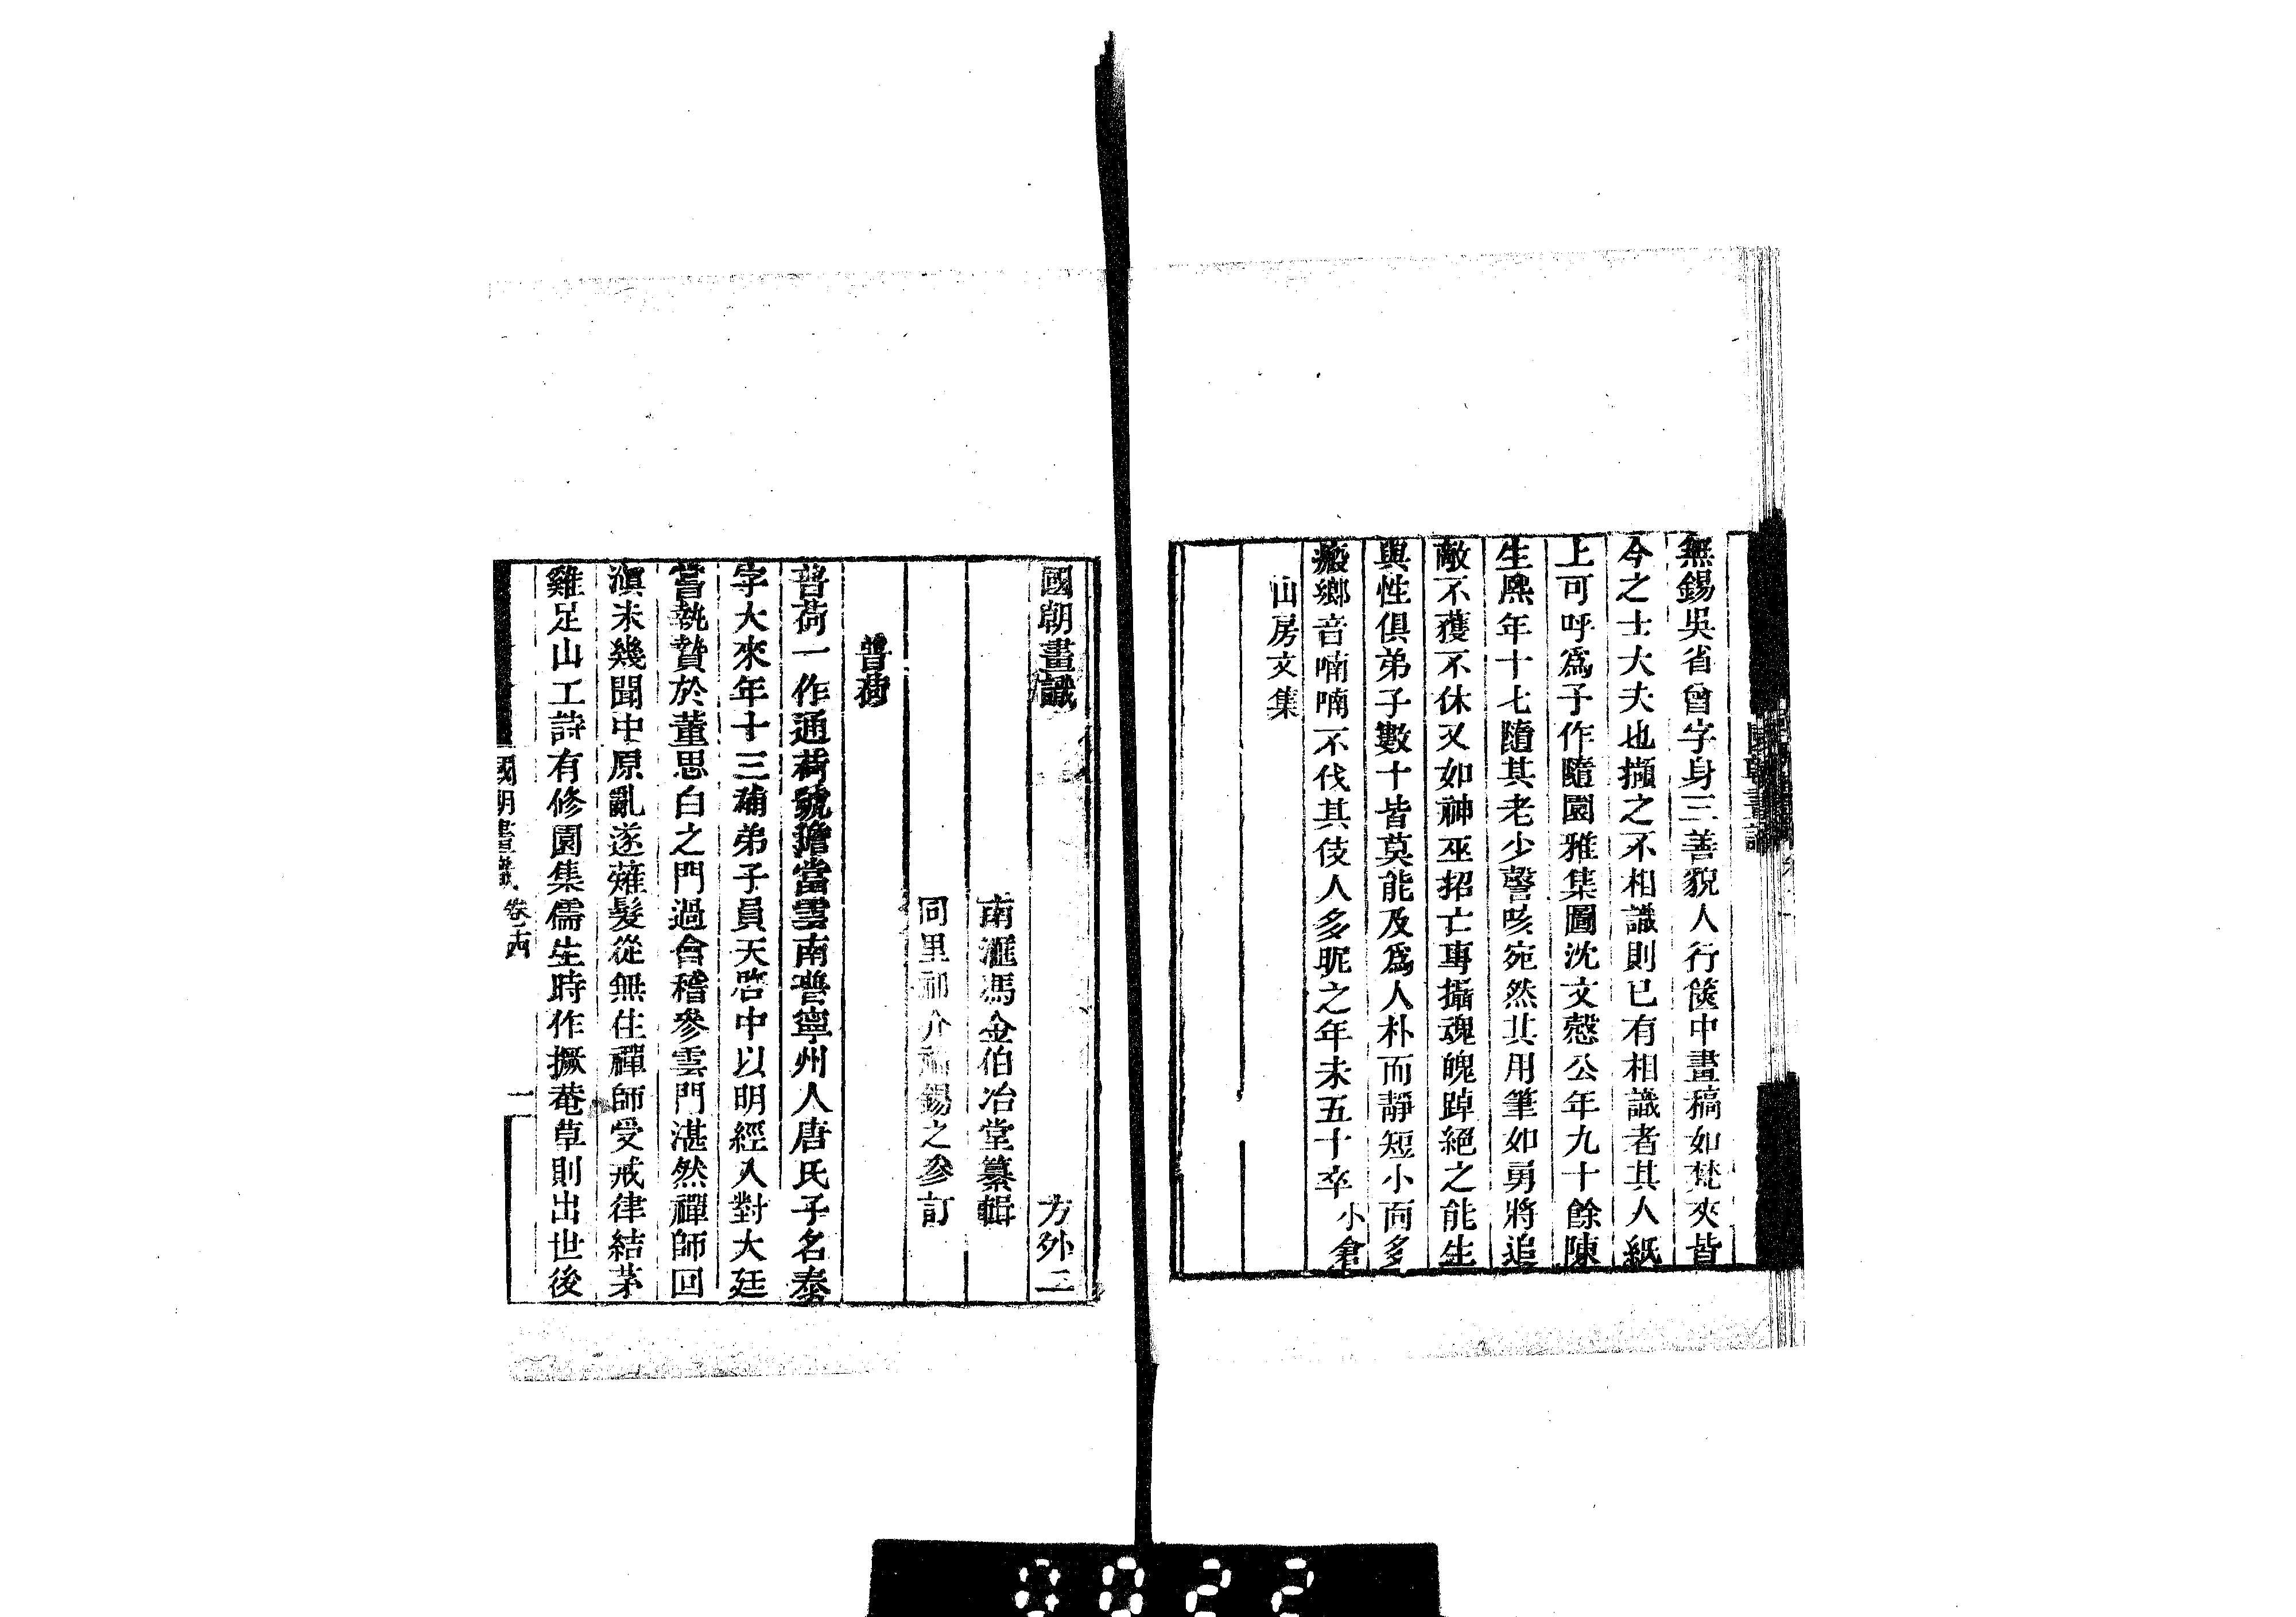 無錫吳省曾字身三善貌人行篋中畫稿如梵夾皆
今之士大夫也攧之不相識則已有相識者其人紙
上可呼爲子作隨園雅集圖沈文慤公年九十餘陳
生熙年十七隨其老少謦咳宛然其用筆如勇將追
敵不獲不休又如神巫招亡專攝魂魄踔絕之能生
與性俱弟子數十皆莫能及爲人朴而靜短小面多
瘢鄉音喃喃不伐其伎人多昵之年未五十卒 小倉
山房文集
國朝畫識 方外二
南滙馮金伯冶堂纂輯
同里 介 錫之參訂
普荷
普荷一作通荷號擔當雲南普寧州人唐氏子名泰
字大來年十三補弟子員天啓中以明經入對大廷
嘗執贄於董思白之門過會稽參雲門湛然禪師回
滇未幾聞中原亂遂薙髮從無住禪師受戒律結茅
雞足山工詩有修園集儒生時作撅菴草則出世後
國朝畫識 卷十四 一
0022